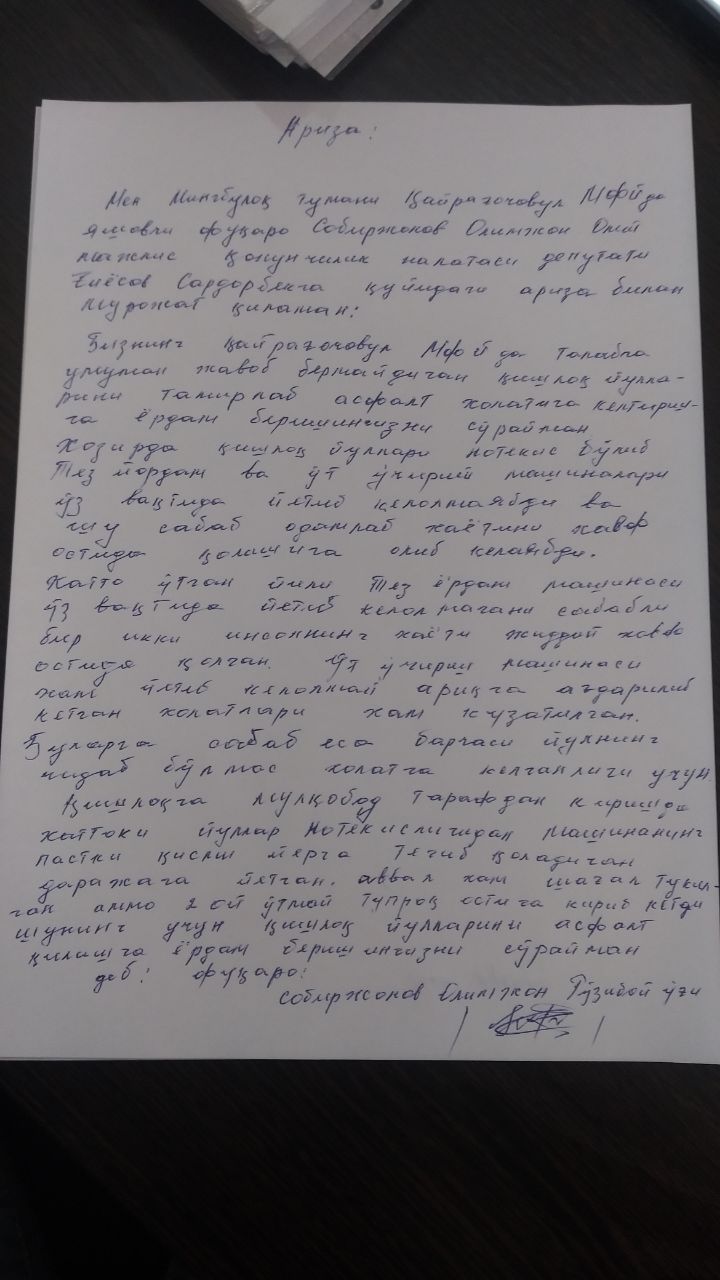 Ариза:
Мен Мингбулоқ тумани Қайрағочовул МФЙ да
яшовчи фуқаро Собиржонов Олимжон Олий
мажлис қонунчилик палатаси депутати
Ғиёсов Сардорбекга қуйидаги ариза билан
мурожат қиламан:
Бизнинг Қайрағочовул МФЙ да талабга
умуман жавоб бермайдиган қишлоқ йулла-
рини тамирлаб асфалт холатига келтириш-
га ёрдам беришингизни сўрайман
Хозирда қишлоқ йуллари нотекис бўлиб
Тез йордам ва ўт ўчириш машиналари
ўз вақтида йетиб келолмаябди ва
шу сабаб одамлаб хаётини хавф
остида қолишига олиб келаябди.
Хатто ўтган йили Тез ёрдам машинаси
ўз вақтида йетиб келолмагани сабабли
бир икки инсоннинг хаёти жиддий хавф
остида қолган. Ўт ўчириш машинаси
хам йетиб келолмай ариқга ағдарилиб
кетган холатлари хам кузатилган.
Буларга сабаб еса барчаси йулнинг
чидаб бўлмас холатга келганлиги учун.
Қишлоқга мулкобод тарафдан киришда
хаттоки йуллар нотекислигидан машинанинг
пастки қисми йерга тегиб қоладиган
даражага йетган. аввал хам шағал тукил-
ган аммо 2 ой ўтмай тупроқ остига кириб кетди
шунинг учун қишлоқ йулларини асфалт
қилишга ёрдам беришингизни сўрайман
деб: фуқаро:
Собиржонов Олимжон Рўзибой ўғли